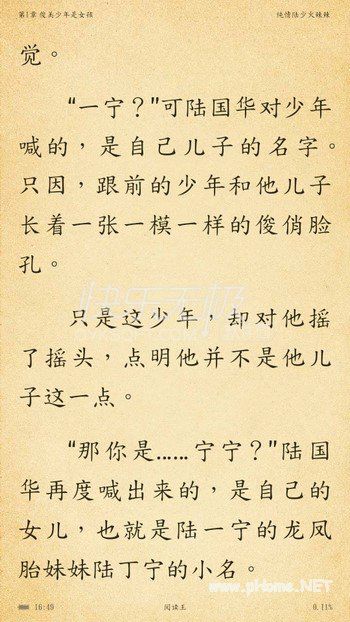 第1章 俊美少年是女孩 纯情陆少火辣辣
觉。
“一宁？”可陆国华对少年
喊的，是自己儿子的名字。
只因，跟前的少年和他儿子
长着一张一模一样的俊俏脸
孔。
只是这少年，却对他摇
了摇头，点明他并不是他儿
子这一点。
“那你是……宁宁？”陆国
华再度喊出来的，是自己的
女儿，也就是陆一宁的龙凤
胎妹妹陆丁宁的小名。
www.pHome.NET
16:49 阅读王 0.11%